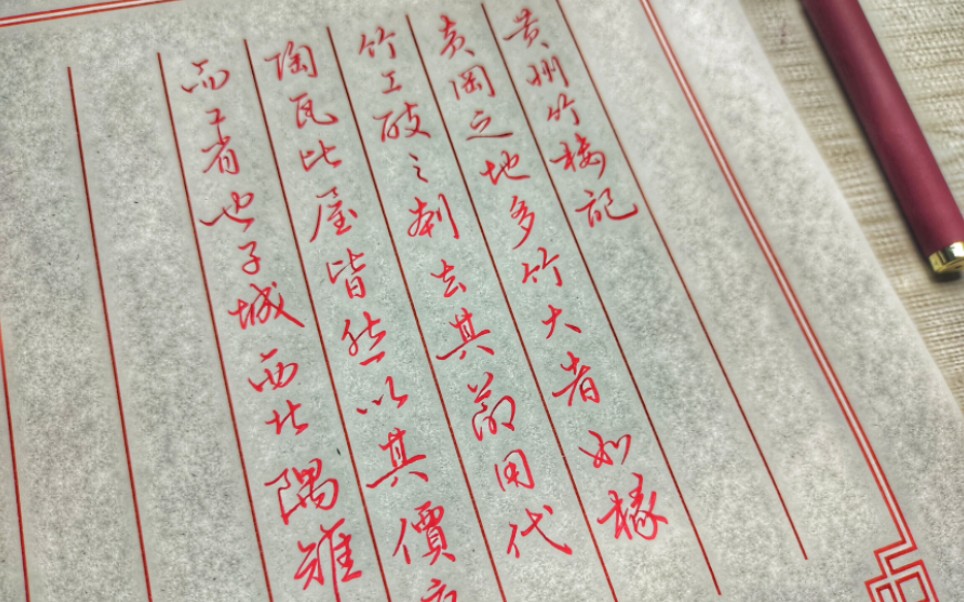 黄州竹楼記
黄岡之地多竹大者如椽
竹工破之刳去其節用代
陶瓦比屋皆然以其價廉
而工省也子城西北隅雉